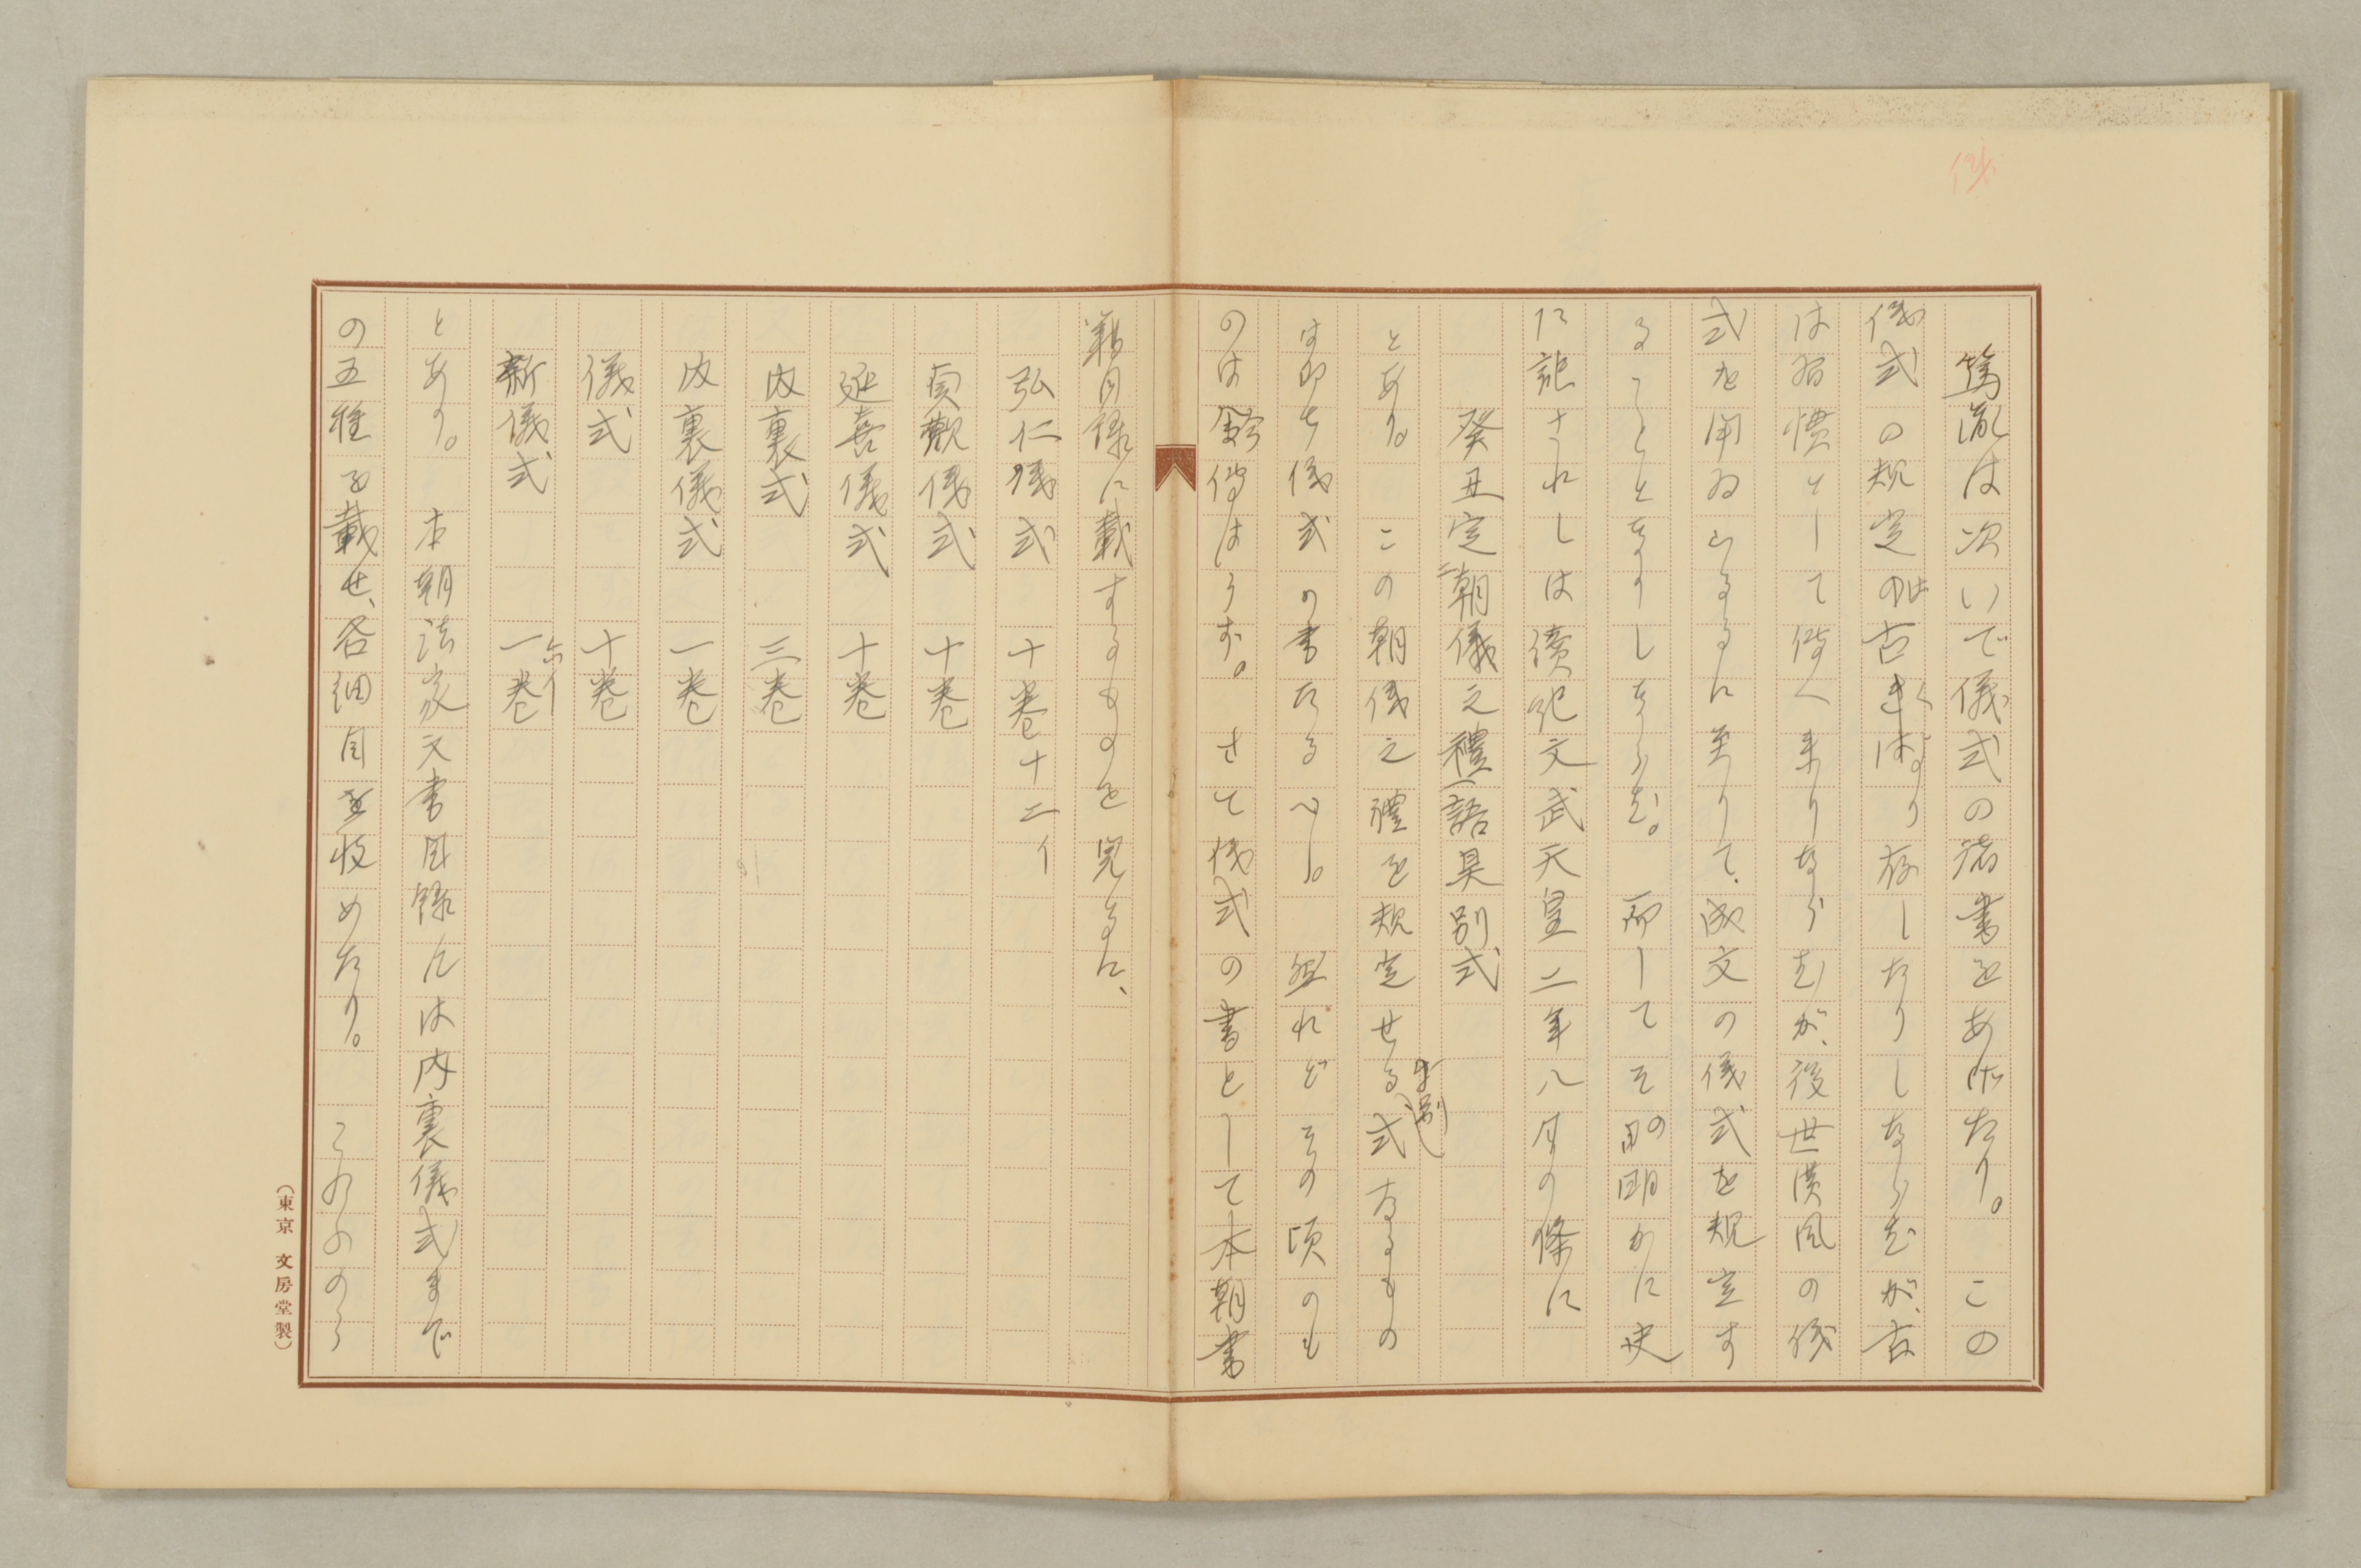 篤胤は次いで儀式の諸書をあげたり。　この
儀式の規定は古くより存したりしならむが、古
は習慣として傳へ来りならむが、後世漢風の儀
式を用ゐらるるに至りて、成文の儀式を規定す
ることとなりしならむ。　而してその明かに史
に記されしは續紀文武天皇二年八月の條に
癸丑定二朝儀之禮一語具別式
とあり。　この朝儀之禮を規定せる別式なるもの
は即ち儀式の書たるべし。　然れどその頃のも
のは今傳はらず。　さて儀式の書として本朝書
籍目録に載するものを見るに、
弘仁儀式　十巻十二イ
貞觀儀式　十巻
延喜儀式　十巻
内裏式　三巻
内裏儀式　一巻
儀式　十巻
新儀式　一巻六イ
とあり。　本朝法家文書目録には内裏儀式まで
の五種を載せ、各細目を收めたり。　これらのう
（東京　文房堂製）